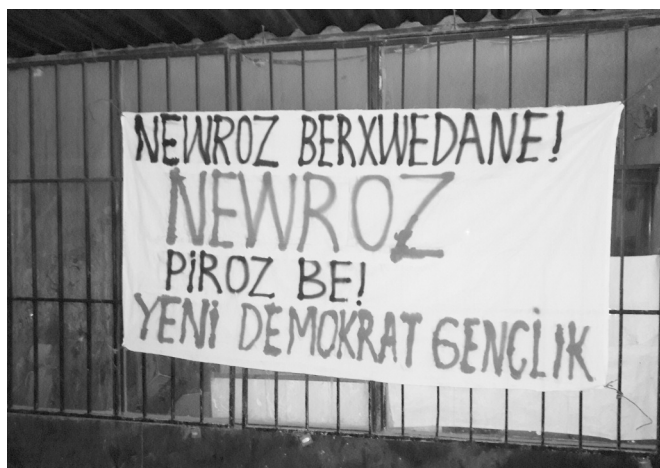 NEWROZ BERXWEDANE!
NEWROZ
PiROZ BE!
YENİ DEMOKRAT GENÇLİK